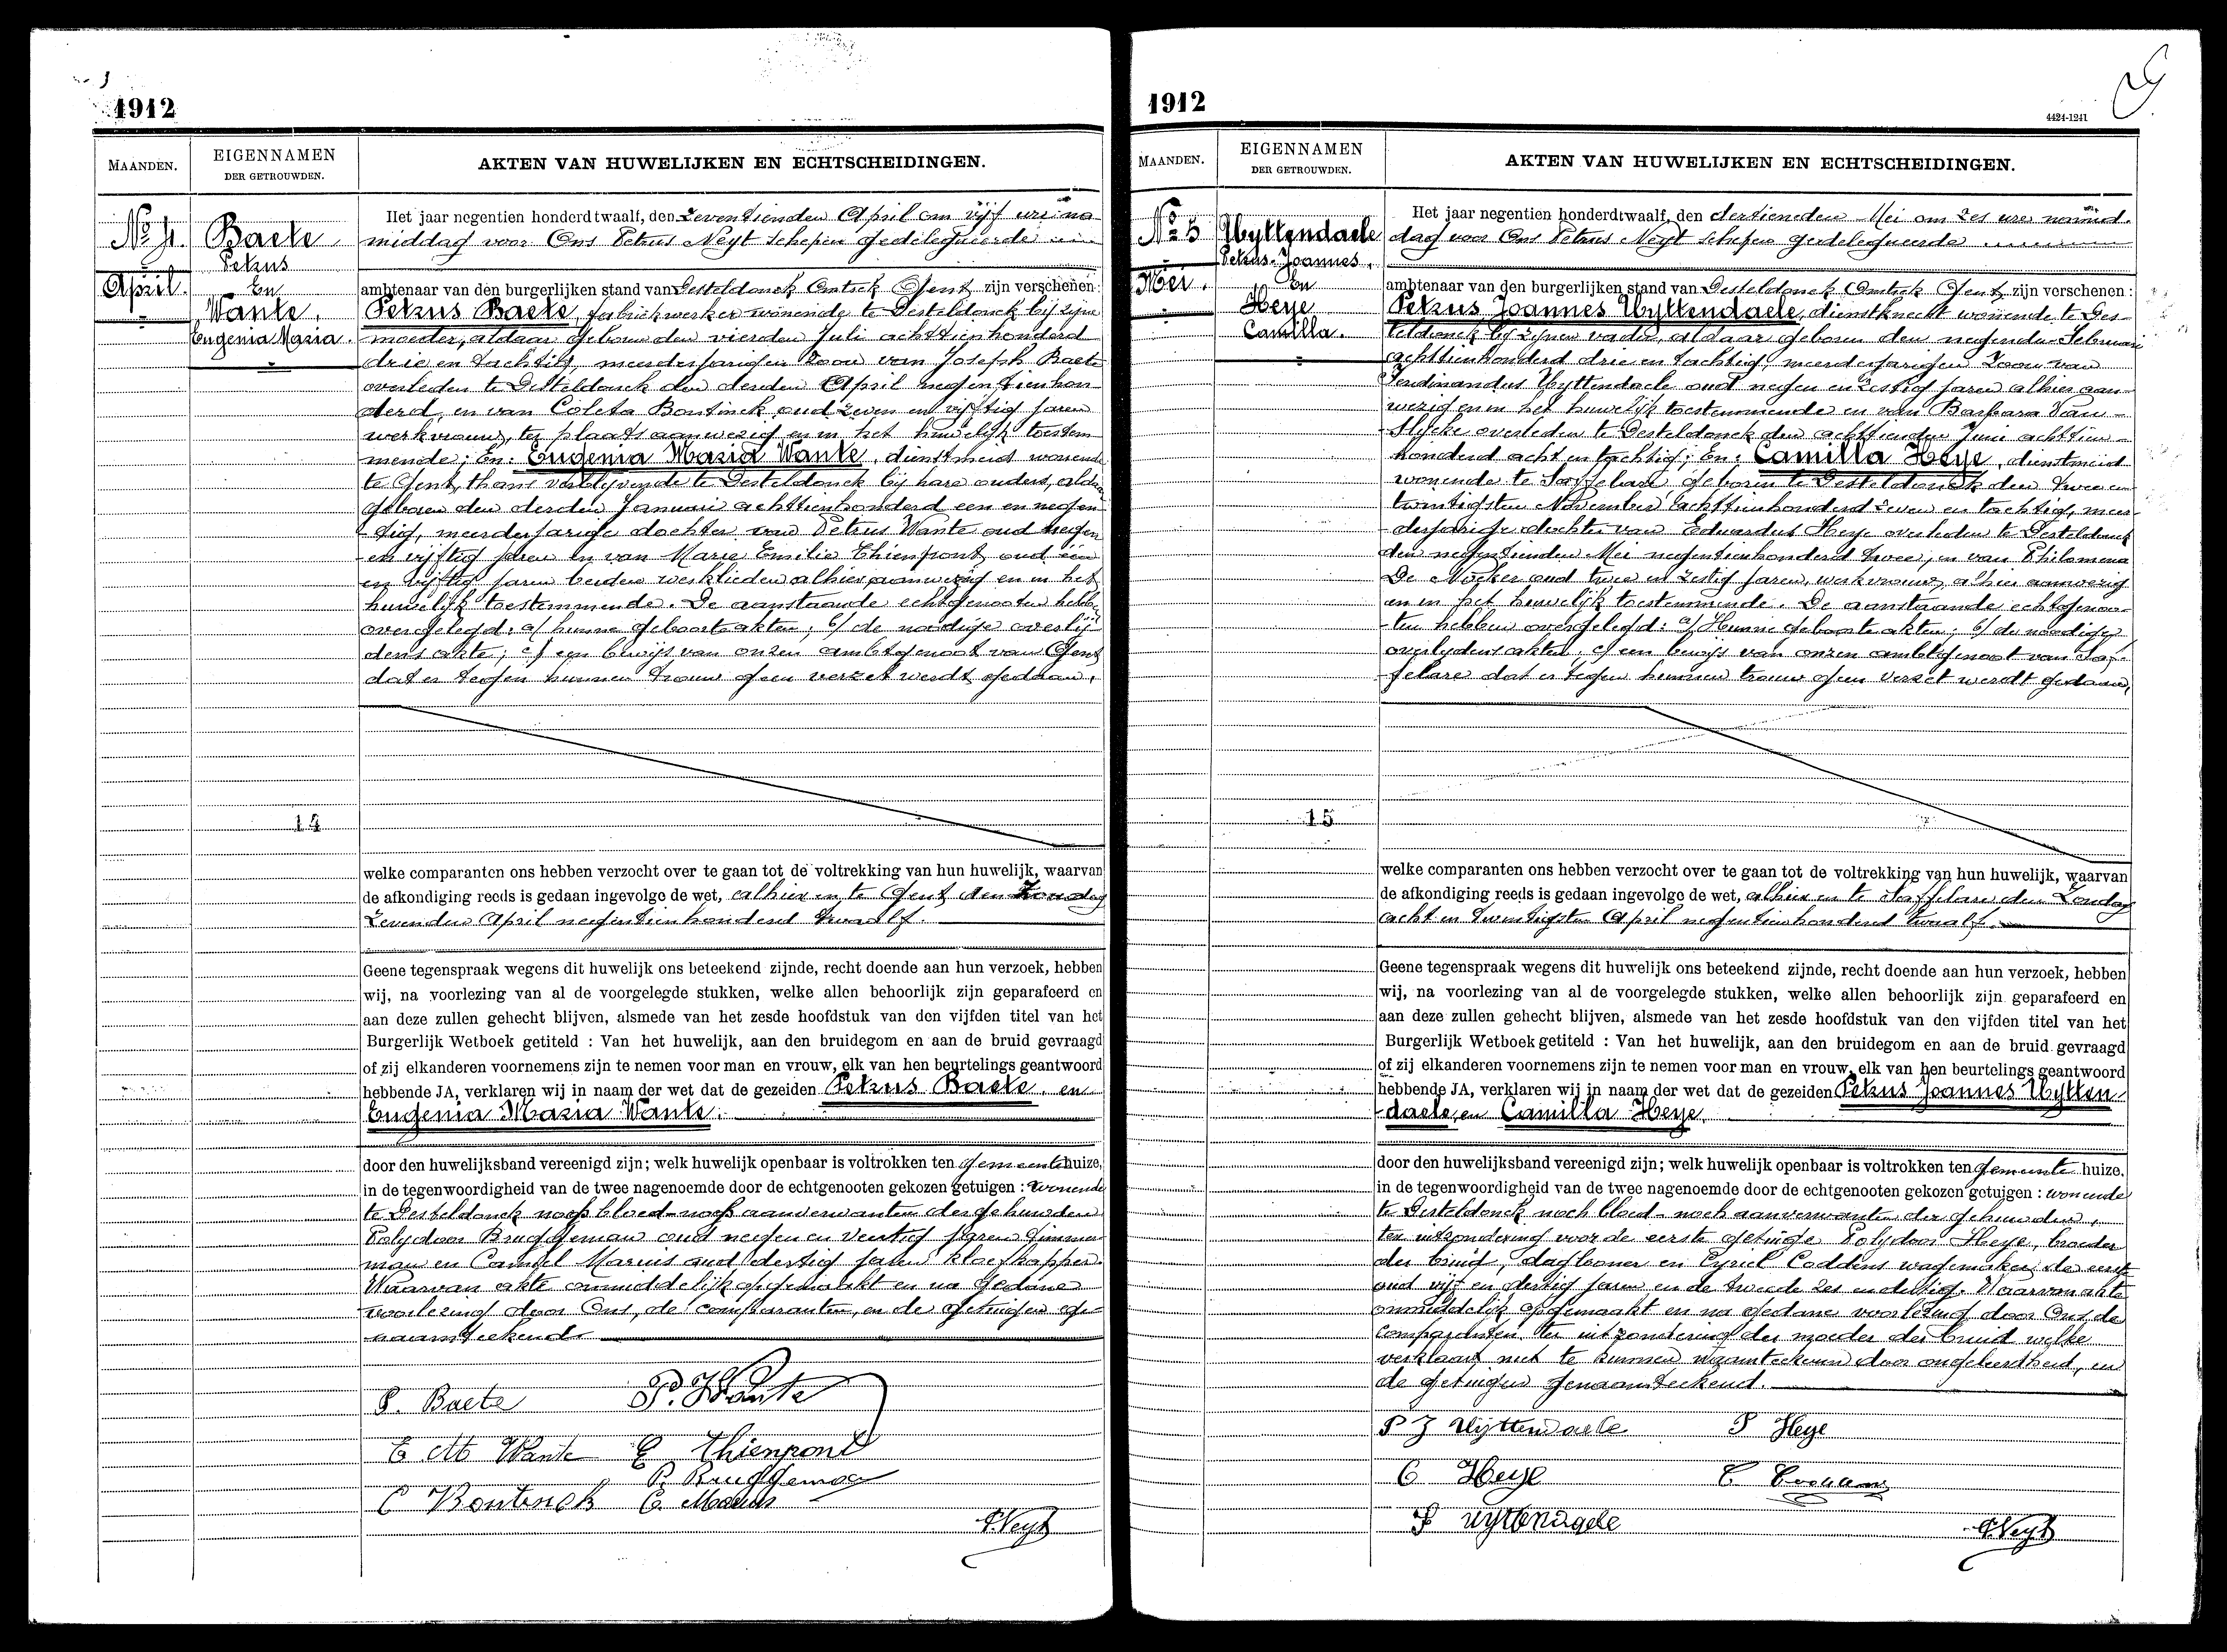 1912
MAANDEN.
EIGENNAMEN
DER GETROUWDEN.
AKTEN VAN HUWELIJKEN EN ECHTSCHEIDINGEN.
No 4.
April.
Baete
Petrus
En
Wante,
Eugenia Maria.
14
Het jaar negentien honderd twaalf, den zeventienden April om vijf ure na
middag voor Ons Petrus Neyt schepen gedelegueerde
ambtenaar van den burgerlijken stand van Desteldonck Omtrek Gent zijn verschenen:
Petrus Baete, fabriekwerker wonende te Desteldonck bij zijne
moeder, aldaar geboren den vierden Juli achttienhonderd
drie en tachtig, meerderjarigen zoon van Joseph Baete
overleden te Desteldonck den derden April negentienhon-
derd, en van Coleta Bontinck oud zeven en vijftig jaren
werkvrouw, ter plaats aanwezig en in het huwelijk toestem-
mende; En: Eugenia Maria Wante, dienstmeid wonende
te Gent, thans verblijvende te Desteldonck bij hare ouders, aldaar
geboren den derden Januari achttienhonderd een en negen-
tig, meerderjarige dochter van Petrus Wante oud negen
en vijftig jaren en van Marie Emilie Thienpont oud een
en vijftig jaren beiden werklieden alhier aanwezig en in het
huwelijk toestemmende. De aanstaande echtgenooten hebben
overgelegd: a/ hunne geboorteakten; b/ de noodige overlij-
dens akte; c/ een bewijs van onzen ambtgenoot van Gent
dat er tegen hunnen trouw geen verzet werdt gedaan,
welke comparanten ons hebben verzocht over te gaan tot de voltrekking van hun huwelijk, waarvan
de afkondiging reeds is gedaan ingevolge de wet, alhier en te Gent den Zondag
Zevenden April negentienhonderd twaalf.
Geene tegenspraak wegens dit huwelijk ons beteekend zijnde, recht doende aan hun verzoek, hebben
wij, na voorlezing van al de voorgelegde stukken, welke allen behoorlijk zijn geparafeerd en
aan deze zullen gehecht blijven, alsmede van het zesde hoofdstuk van den vijfden titel van het
Burgerlijk Wetboek getiteld : Van het huwelijk, aan den bruidegom en aan de bruid gevraagd
of zij elkanderen voornemens zijn te nemen voor man en vrouw, elk van hen beurtelings geantwoord
hebbende JA, verklaren wij in naam der wet dat de gezeiden Petrus Baete, en
Eugenia Maria Wante.
door den huwelijksband vereenigd zijn; welk huwelijk openbaar is voltrokken ten gemeentehuize,
in de tegenwoordigheid van de twee nagenoemde door de echtgenooten gekozen getuigen : wonende
te Desteldonck noch bloed- noch aanverwanten der gehuwden
Polydoor Bruggeman oud negen en veertig jaren timmer-
man en Camiel Marius oud dertig jaren kloefkapper.
Waarvan akte onmiddelijk opgemaakt en na gedane
voorlezing door Ons, de comparanten, en de getuigen ge-
naamteekend.
P. Baete
P. Wante
E M Wante
E Thienpont
P. Bruggeman
C Bontinck
C. Marius
P. Neyt
1912
4424-1241
MAANDEN.
EIGENNAMEN
DER GETROUWDEN.
AKTEN VAN HUWELIJKEN EN ECHTSCHEIDINGEN.
No 5
Mei.
Uyttendaele
Petrus-Joannes,
En
Heye
Camilla.
15
Het jaar negentien honderdtwaalf, den dertieneden Mei om zes ure namid-
dag voor Ons Petrus Neyt schepen gedelegueerde
ambtenaar van den burgerlijken stand van Desteldonck Omtrek Gent, zijn verschenen :
Petrus Joannes Uyttendaele, dienstknecht wonende te Des-
teldonck bij zijnen vader, aldaar geboren den negenden Februari
achttienhonderd drie en tachtig, meerderjarigen zoon van
Ferdinandus Uyttendaele oud negen en zestig jaren alhier aan-
wezig en in het huwelijk toestemmende en van Barbara Van-
Slycke overleden te Desteldonck den achttienden Juni achttien-
honderd acht en tachtig; En: Camilla Heye, dienstmeid
wonende te Saffelare geboren te Desteldonck den twee en
twintigsten November achttienhonderd zeven en tachtig, meer-
derjarige dochter van Eduardus Heye overleden te Desteldonck
den negentienden Mei negentienhonderd twee, en van Philomena
De Nocker oud twee en zestig jaren, werkvrouw, alhier aanwezig
en in het huwelijk toestemmende. De aanstaande echtgenoo-
ten hebben overgelegd: a/ Hunne geboorteakten; b/ de noodige
overlydens akten, c/ een bewijs van onzen ambtgenoot van Saf-
felare dat er tegen hunnen trouw geen verzet werdt gedaan,
welke comparanten ons hebben verzocht over te gaan tot de voltrekking van hun huwelijk, waarvan
de afkondiging reeds is gedaan ingevolge de wet, alhier en te Saffelare den Zondag
acht en twintigsten April negentienhonderd twaalf.
Geene tegenspraak wegens dit huwelijk ons beteekend zijnde, recht doende aan hun verzoek, hebben
wij, na voorlezing van al de voorgelegde stukken, welke allen behoorlijk zijn geparafeerd en
aan deze zullen gehecht blijven, alsmede van het zesde hoofdstuk van den vijfden titel van het
Burgerlijk Wetboek getiteld : Van het huwelijk, aan den bruidegom en aan de bruid gevraagd
of zij elkanderen voornemens zijn te nemen voor man en vrouw, elk van hen beurtelings geantwoord
hebbende JA, verklaren wij in naam der wet dat de gezeiden Petrus Joannes Uytten-
daele, en Camilla Heye.
door den huwelijksband vereenigd zijn; welk huwelijk openbaar is voltrokken ten gemeente huize,
in de tegenwoordigheid van de twee nagenoemde door de echtgenooten gekozen getuigen : wonende
te Desteldonck noch bloed- noch aanverwanten der gehuwden,
ten uitzondering voor de eerste getuige Polydoor Heye, broeder
der bruid, daglooner en Cyriel Coddens wagemaker, de eerste
oud vijf en dertig jaren en de tweede zes en dertig. Waarvan akte
onmiddelijk opgemaakt en na gedane voorlezing door Ons de
comparanten, ter uitzondering der moeder der bruid welke
verklaart niet te kunnen naamteekenen door ongeleerdheid, en
de getuigen genaamteekend.
P J Uyttendaele
P Heye
C Heye
C Coddens
F Uyttendaele
P. Neyt